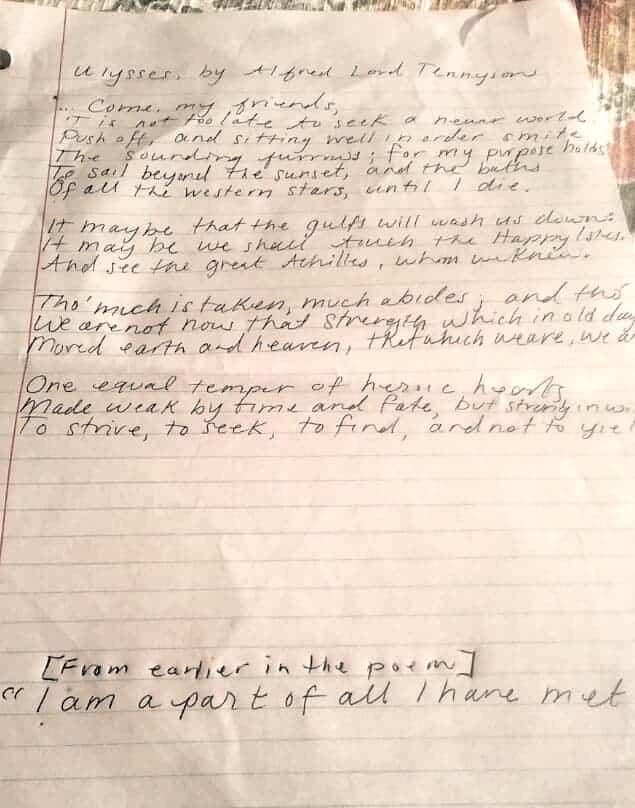 Ulysses, by Alfred Lord Tennyson
... Come, my friends,
'T is not too late to seek a newer world
Push off, and sitting well in order smite
The sounding furrows; for my purpose holds
To sail beyond the sunset, and the baths
Of all the western stars, until I die.
It maybe that the gulfs will wash us down:
It may be we shall touch the Happy Isles.
And see the great Achilles, whom we knew.
Tho' much is taken, much abides; and tho
We are not now that strength which in old day
Moved earth and heaven, that which weare, we a
One equal temper of heroic hearts
Made weak by time and fate, but strong in w
To strive, to seek, to find, and not to yiel
[From earlier in the poem]
"I am a part of all I have met